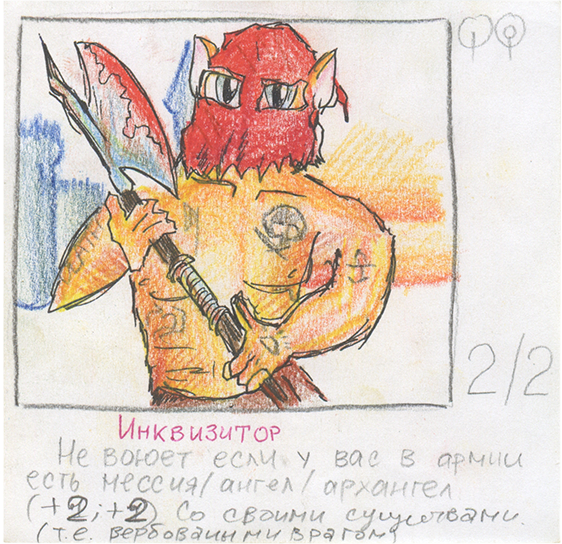 2/2
Инквизитор
Не воюет если у вас в армии
есть мессия/ангел/архангел
(+2;+2) Со своими существами.
(т.е. вербоваными врагом)